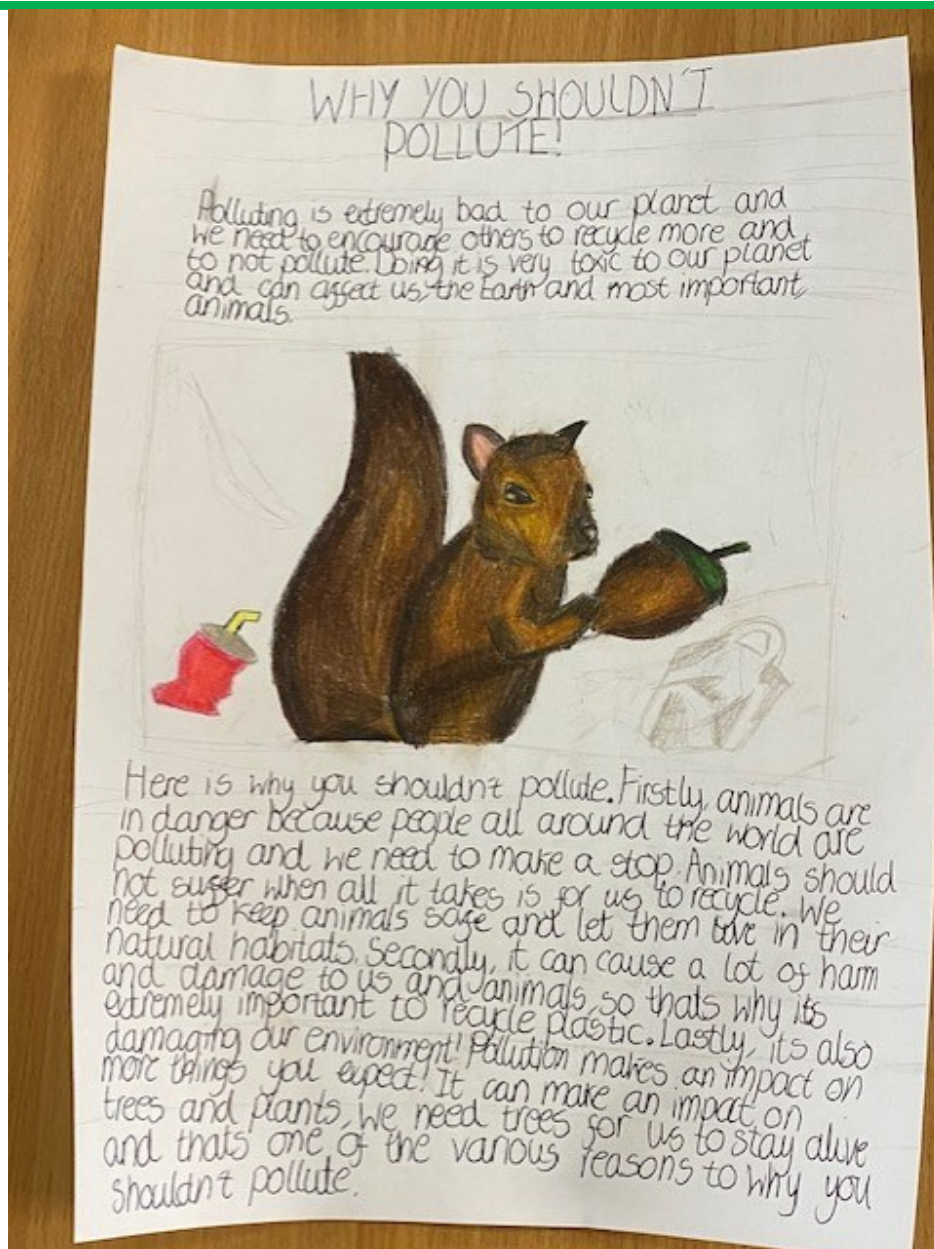 WHY YOU SHOULDN'T
POLLUTE!
Polluting is extremely bad to our planet and
we need to encourage others to recycle more and
to not pollute. Doing it is very toxic to our planet
and can affect us, the Earth and most important,
animals.
Here is why you shouldn't pollute. Firstly, animals are
in danger because people all around the world are
polluting and we need to make a stop. Animals should
not suffer when all it takes is for us to recycle. We
need to keep animals safe and let them live in their
natural habitats. Secondly, it can cause a lot of harm
and damage to us and animals, so thats why its
extremely important to recycle plastic. Lastly, its also
damaging our environment! Pollution makes an impact on
more things you expect! It can make an impact on
trees and plants, we need trees for us to stay alive
and thats one of the various reasons to why you
shouldn't pollute.